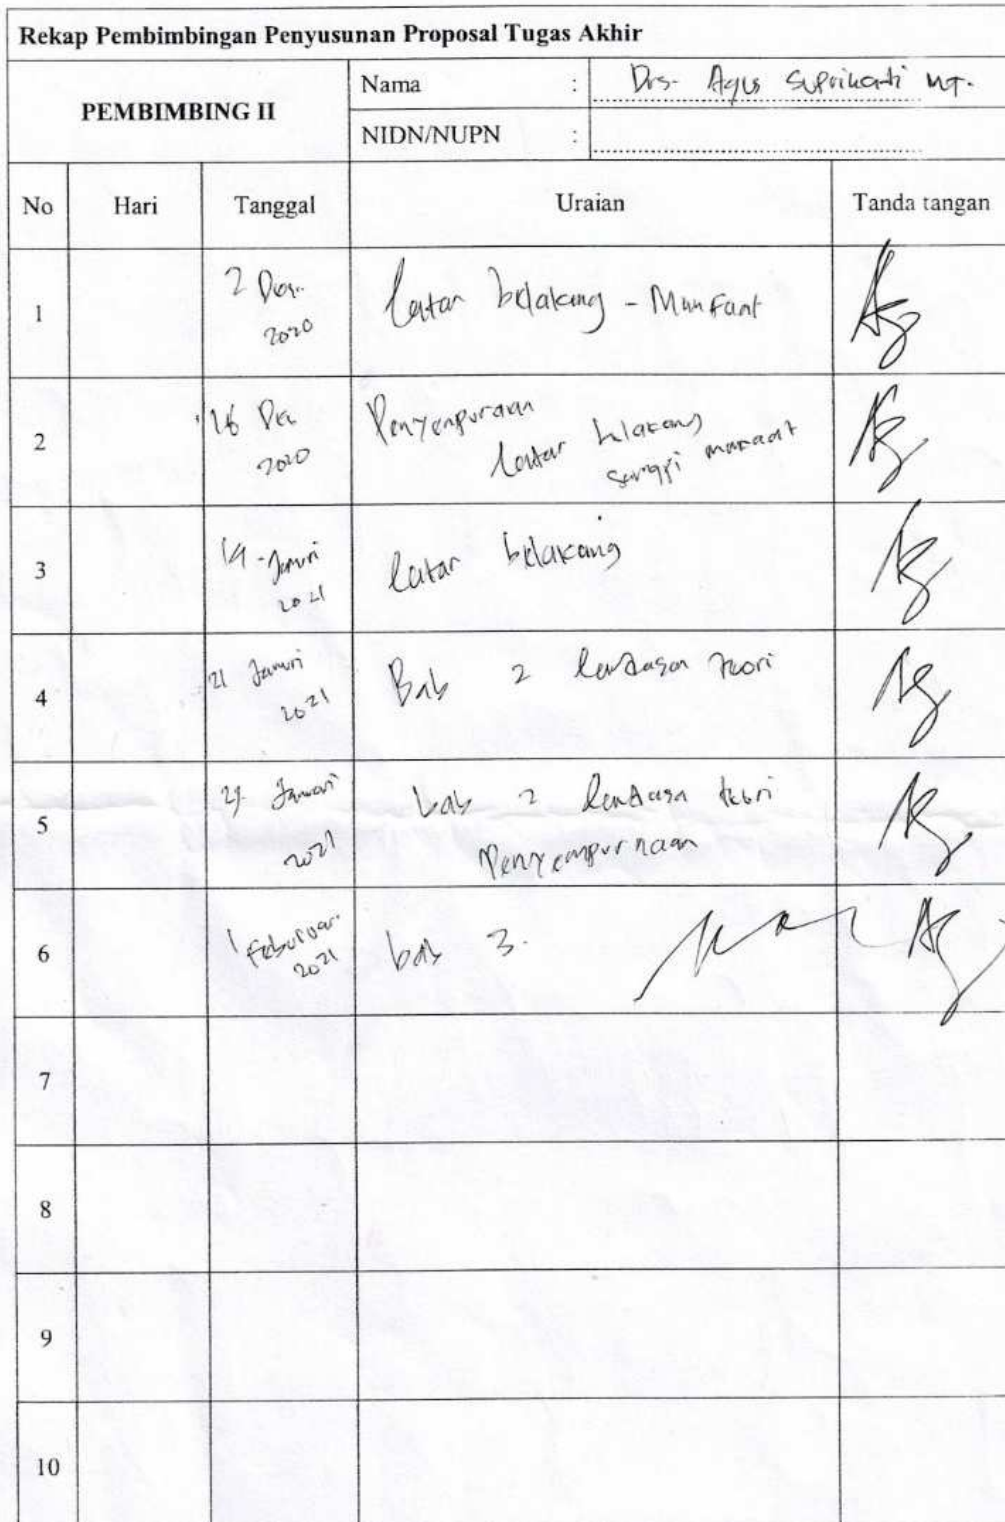 Rekap Pembimbingan Penyusunan Proposal Tugas Akhir
PEMBIMBING II
Nama : Drs. Agus Suprihanti MT.
NIDN/NUPN :
No Hari Tanggal Uraian Tanda tangan
1 2 Des. 2020 latar belakang - Manfaat
2 16 Des 2020 Penyempuraan
latar belakang
3 14 - Januri 2021 latar belakang
4 21 Januri 2021 Bab 2 landasan teori
5 Januari 2021 bab 2 landasan teori
Penyempurnaan
6 1 Februar. 2021 bab 3.
7
8
9
10